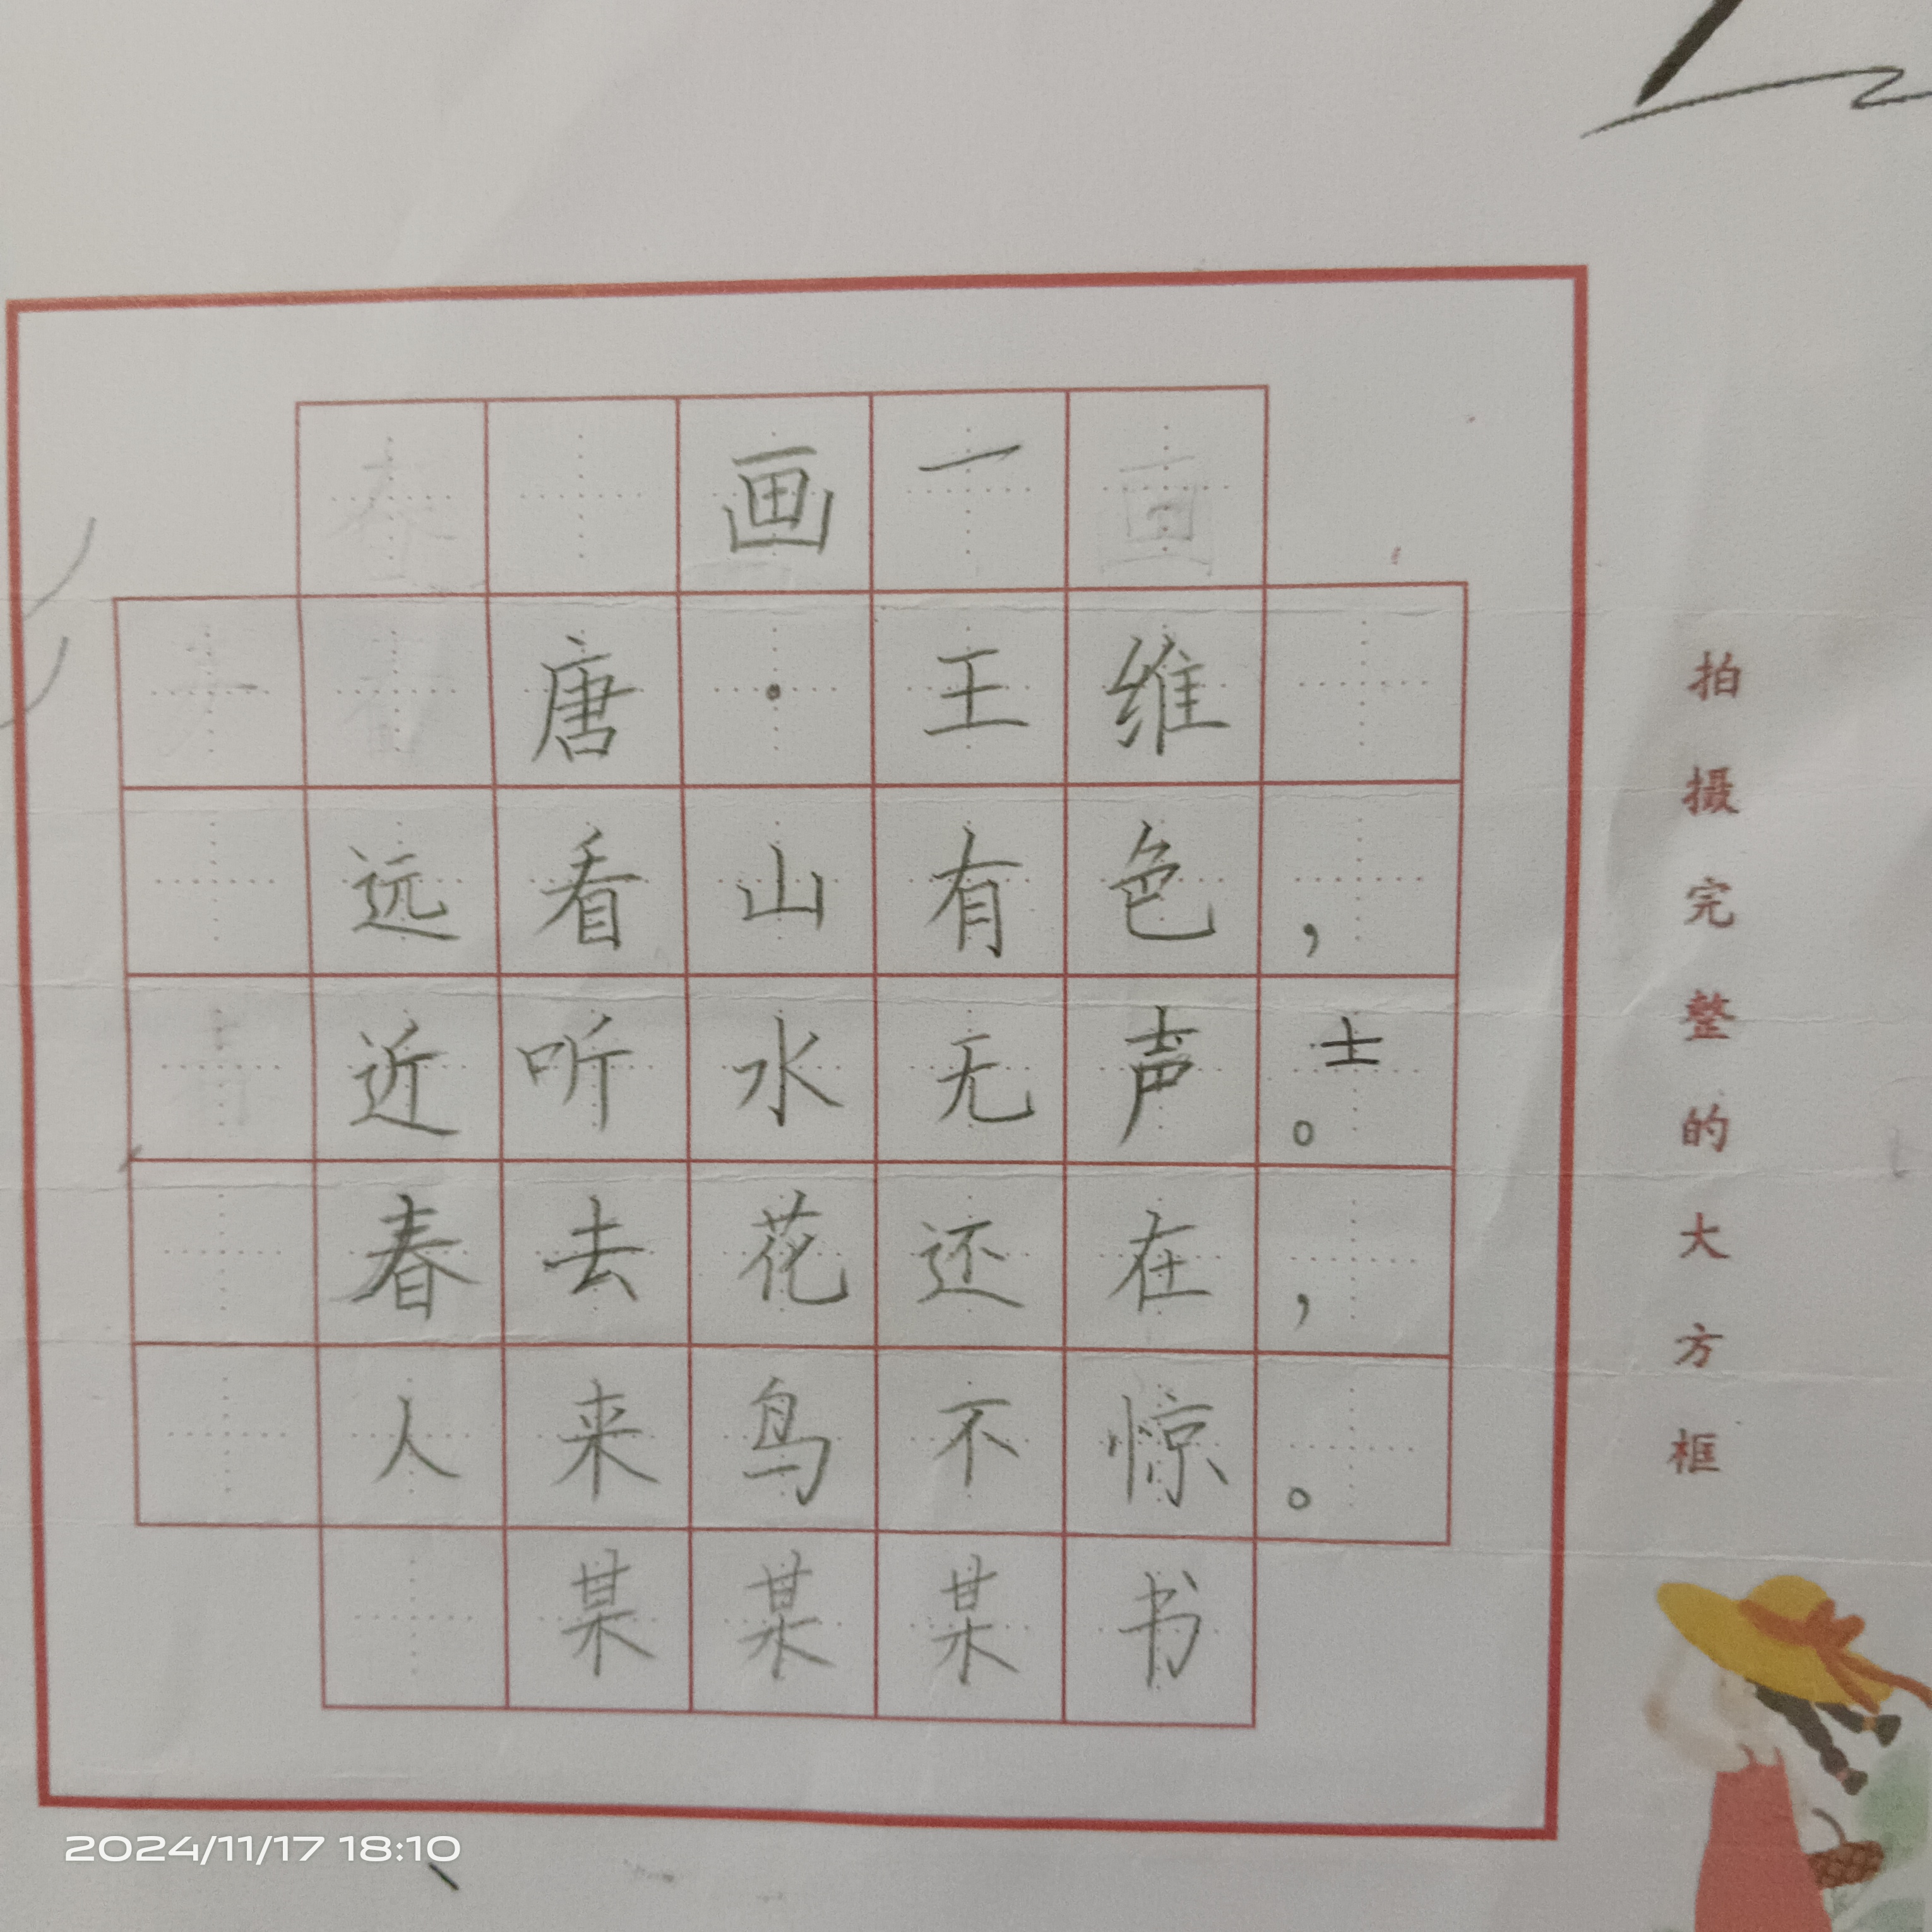 画一
唐·王维
远看山有色，
近听水无声。士
春去花还在，
人来鸟不惊。
某某某书
拍摄完整的大方框
2024/11/17 18:10